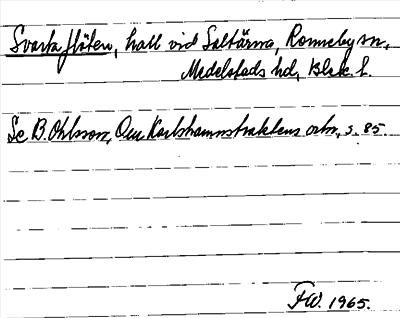 Svarta flöten, hall vid Saltärna, Ronneby sn,
Medelstads hd, Blek. l.
Se B. Ohlsson, Om Karlshamnstraktens ortn, s. 85.
FW. 1965.